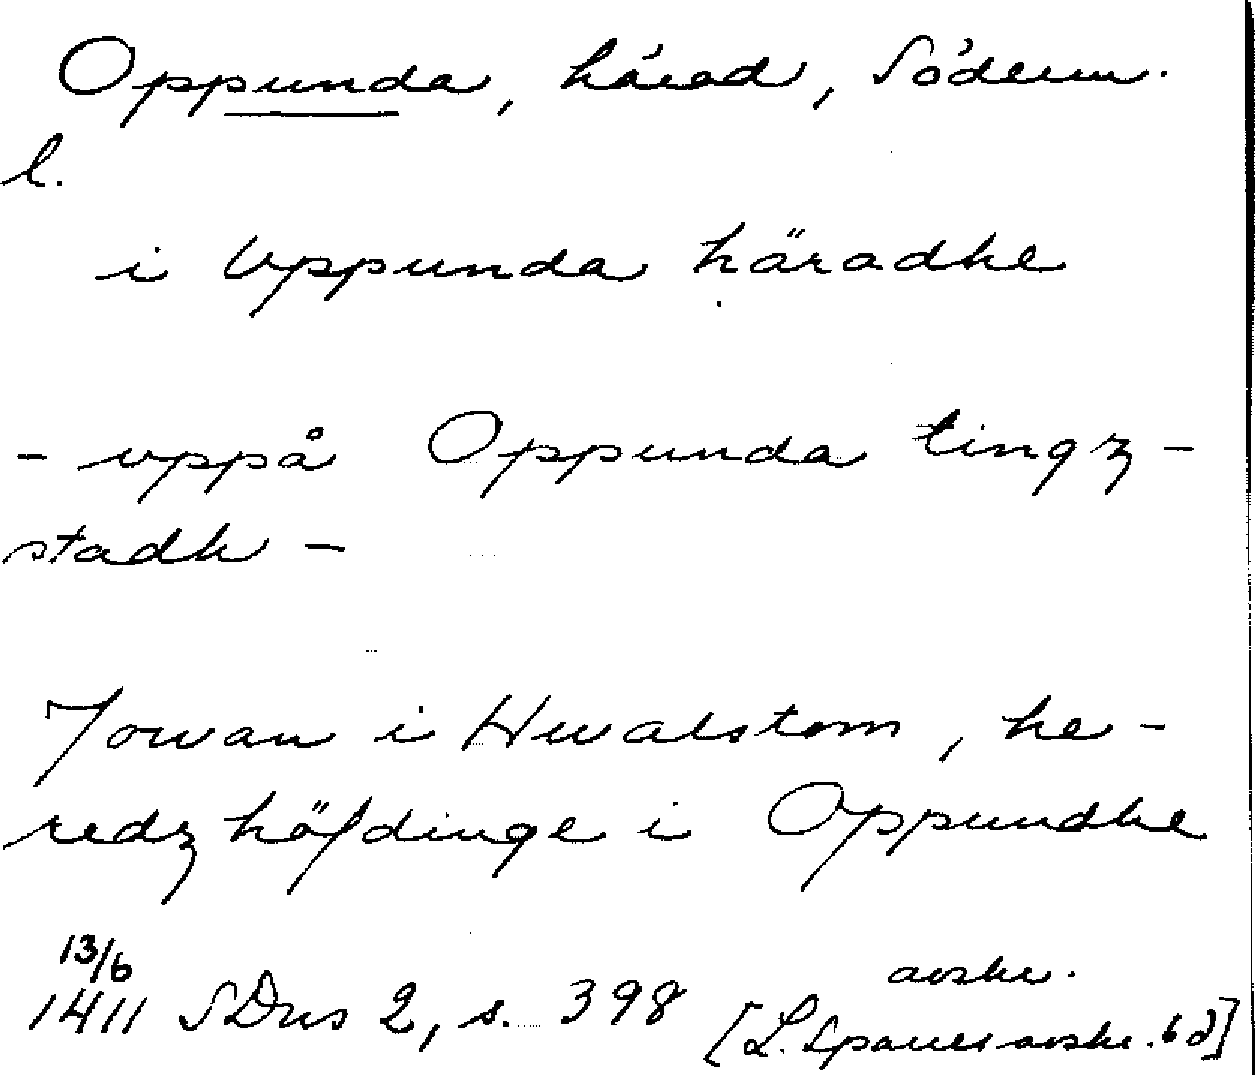 Oppunda, härad, Söderm.
l.
i Vppunda häradhe
- vppå Oppunda tingz-
stadh -
Jowan i Hwalstom, he-
redzhöfdinge i Oppundhe
13/6
1411 SDns 2, s. 398 avskr.
[L. Sparres avskr. bd]